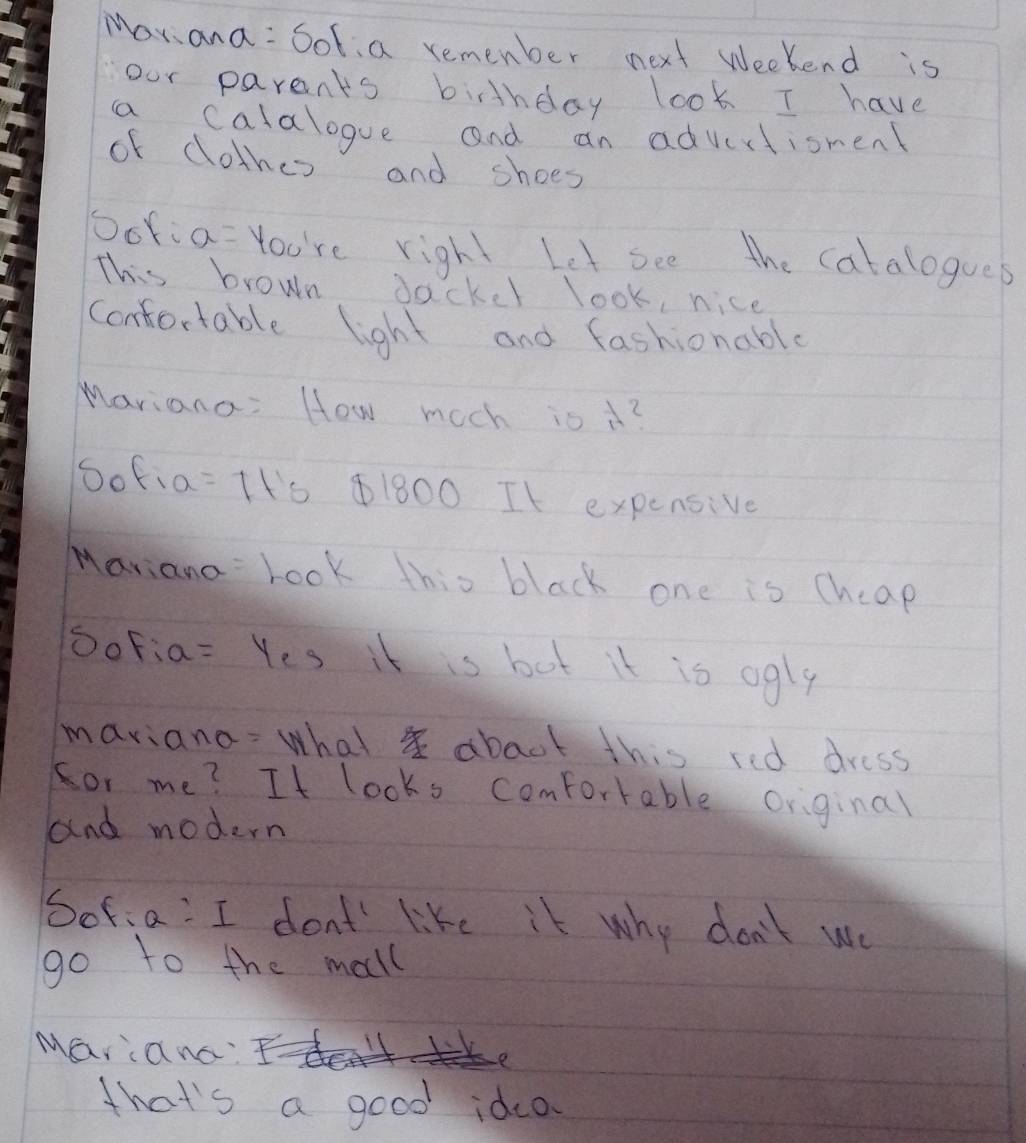 Mariana = Sofia remenber next weekend is
our parents birthday look I have
a catalogue and an advertisment
of clothes and shoes
Sofia = You're right Let see the catalogues
This brown Jacket look, nice
Confortable light and fashionable
Mariana = How much is it?
Sofia = It's $1800 It expensive
Mariana = Look this black one is Cheap
Sofia = Yes it is but it is ugly
mariana = What abaut this red dress
for me? It looks comfortable original
and modern
Sofia: I dont' like it why don't we
go to the mall
Mariana: I don't like
that's a good idea